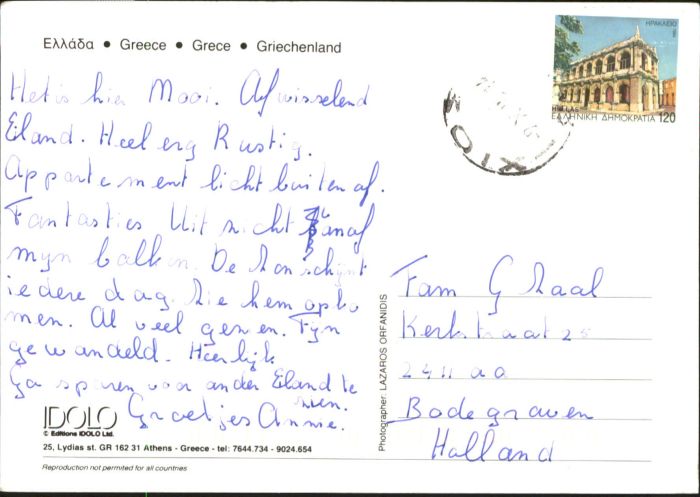 Ελλάδα • Greece • Grece • Griechenland
Het is hier Mooi. Afwisselend
Eiland. Heel erg Rustig.
Appartement licht buitenaf.
Fantasties Uitzicht vanaf
mijn balkon. De Zon schijnt
iedere dag. Zie hem opko
men. Al veel gezien. Fijn
gewandeld. Heerlijk
Ga sparen voor ander Eiland te
zien.
Groetjes Annie.
ΗΡΑΚΛΕΙΟ
HELLAS
ΕΛΛΗΝΙΚΗ ΔΗΜΟΚΡΑΤΙΑ 120
ΧΙΟΥ
Fam G Zaal
Kerkstraat 25
2411 AA
Bodegraven
Holland
Photographer: LAZAROS ORFANIDIS
IDOLO
© Editions IDOLO Ltd.
25, Lydias st. GR 162 31 Athens - Greece - tel: 7644.734 - 9024.654
Reproduction not permited for all countries